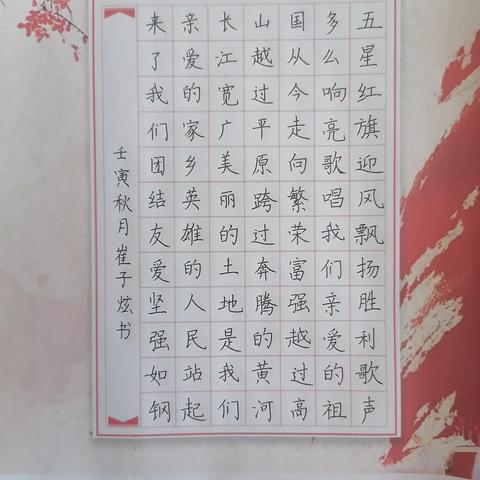 五星红旗迎风飘扬胜利歌声
多么响亮歌唱我们亲爱的祖
国从今走向繁荣富强越过高
山越过平原跨过奔腾的黄河
长江宽广美丽的土地是我们
亲爱的家乡英雄的人民站起
来了我们团结友爱坚强如钢
壬寅秋月崔子炫书